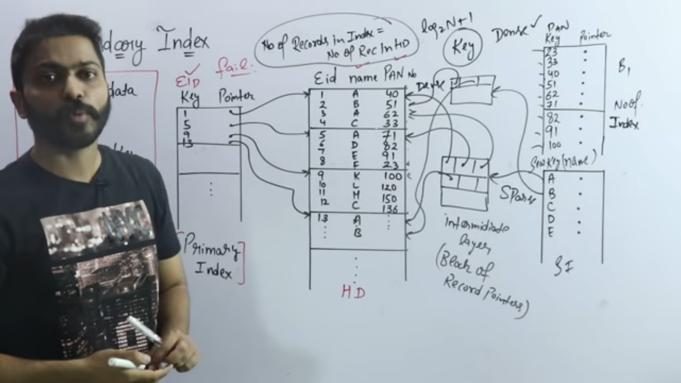 dcory Index
data
EID fail.
Key Pointer
1
5
9
13
Primary Index
No of Records in Index =
No of Rec in HD
log2N+1
Key
Dense ✓
Eid name PAN No
1 A 40
2 B 51
3 A 62
4 C 33
5 A 71
6 D 82
7 E 91
8 E 23
9 K 100
10 L 120
11 M 150
12 C 136
13 A
B
HD
Dense
intermediate
layer
(Block of
Record Pointers)
Sparse
PAN
Key Pointer
23
33
40
51
62
71
82
91
100
B1
No of.
Index
Key(name)
A
B
C
D
E